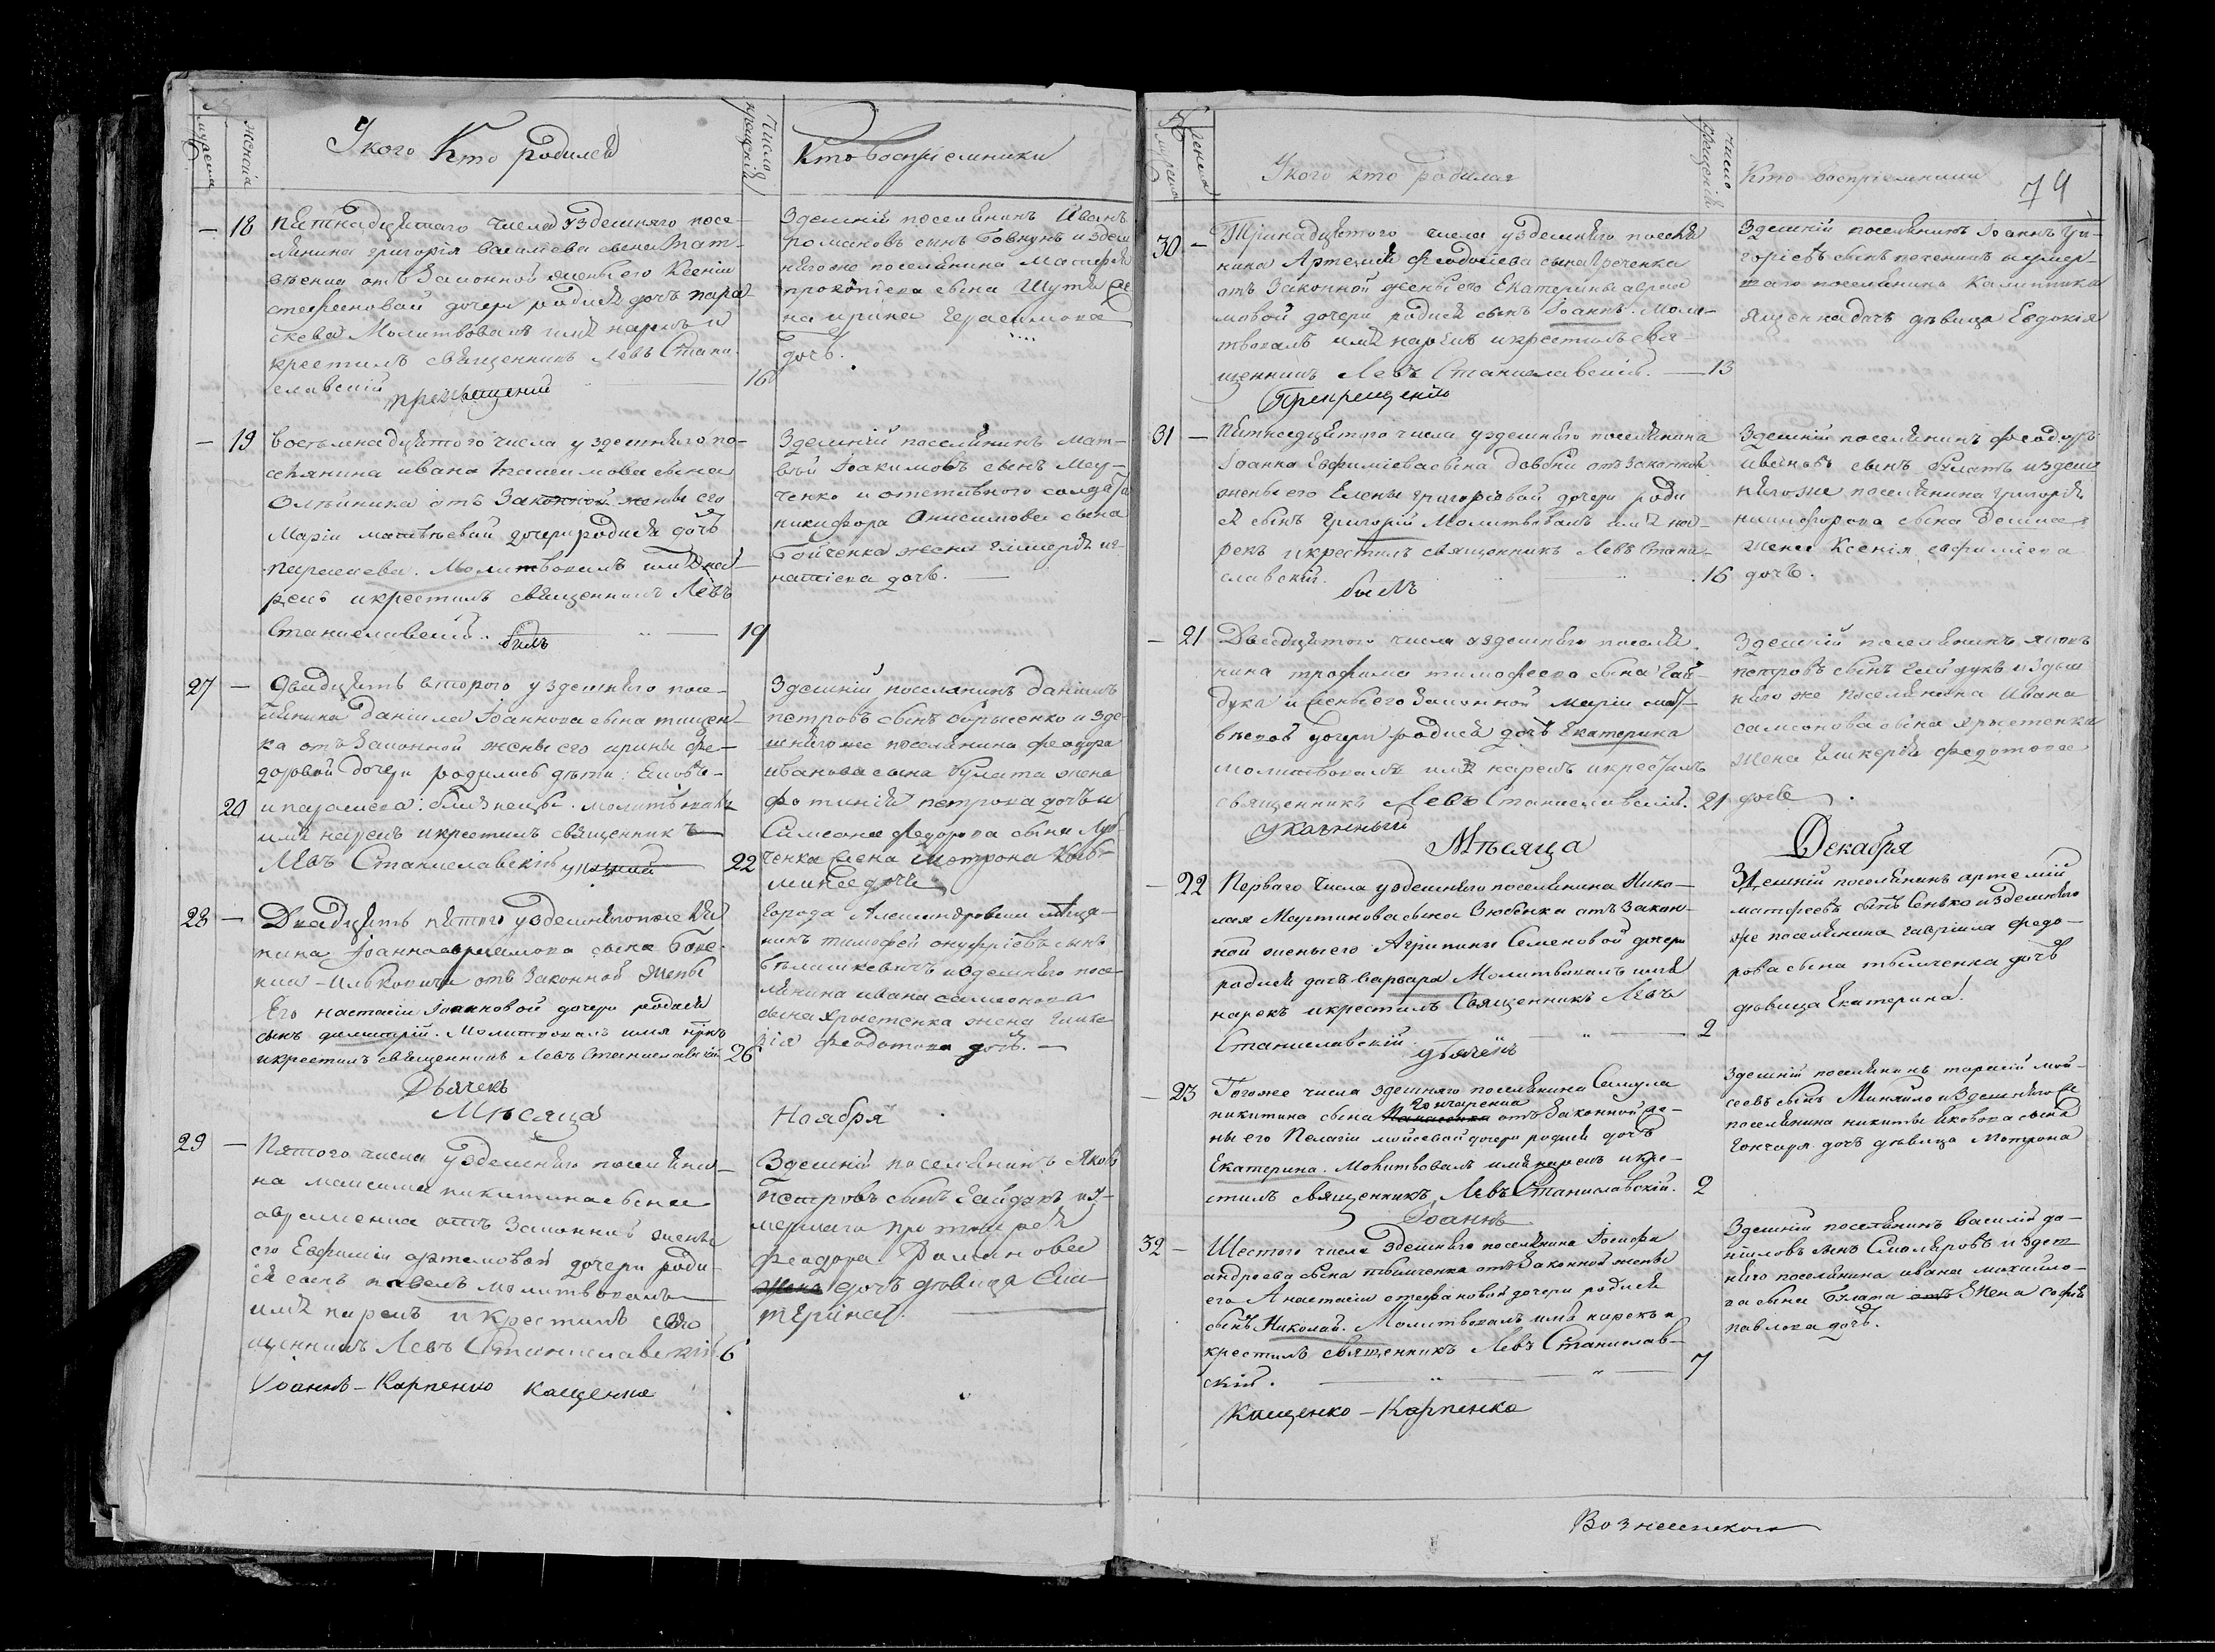 мужеска
женска
У кого Кто родился
число крещенія
Кто воспріемники
18
Пятнадцятого числа у здешняго посе-
лянина григорія василіева сына Мат-
вѣенка отъ Законной жены его Ксеніи
стефановой дочери родися дочъ пара-
скева Молитвовалъ имя нарекъ и
крестилъ священникъ Левъ Стани-
славскій
16
Здешній поселянинъ Иванъ
романовъ сынъ Бовкунъ и здеш
нягоже поселянина
прокопіева сына Шутя же
на ирина Герасимова
дочь.
19
восемнадцятого числа у здешняго по-
селянина ивана сына
Олѣйника отъ Законной жены его
Маріи матвѣевой дочери родися дочь
параскева. Молитвовалъ имя на-
рекъ и крестилъ священникъ Левъ
Станиславскій.
былъ
19
Здешній поселянинъ Мат-
вѣй Іоакимовъ сынъ
и отставного солдата
никифора Онисимова сына
Бойченка жена гликерія иг-
натіева дочь.
27
Двадцять второго у здешняго посе-
лянина Даніила Іоаннова сына тищен-
ка отъ Законной жены его ирины фе-
доровой дочери родились дѣти:
20
и параскева: близнецы. молитвовалъ
имя нарекъ и крестилъ священникъ
Левъ Станиславскій
22
Здешній поселянинъ Даніилъ
петровъ сынъ борисенко и зде-
шнягоже поселянина феодора
иванова сына булата жена
фотинія петрова дочь и
Симеона федорова сына
ченка жена Мотрона
дочь
28
Двадцять пятого у здешнягопоселя
нина Іоанна сына
отъ законной жены
его настасіи Іоанновой дочери родися
сынъ димитрій. Молитвовалъ имя нарекъ
и крестилъ священникъ Левъ Станиславскій
26
Города Александровки меща-
нинъ тимофей онуфріевъ сынъ
и здешняго посе-
лянина ивана самсонова
сына христенка жена глике
рія феодотова дочь.
Дьячекъ
Мѣсяца
Ноября
29
Пятого числа у здешняго поселяни-
на максима никитина сына
авраменка отъ Законной жены
его Евфиміи артемовой дочери роди-
ся сынъ павелъ молитвовалъ
имя нарекъ и крестилъ свя-
щенникъ Левъ Станиславскій
6
Здешній поселянинъ Яковъ
Петровъ сынъ Гайдукъ и у-
мершаго протоіерея
феодора Романова
жена дочь дѣвица Ека-
терина.
Іоаннъ - Карпенко Кащенко
мужеска
женска
У кого кто родился
число крещенія
Кто воспріемники
74
30
Тринадцятого числа у здешняго поселя
нина Артемія Феодосіева сына Греченка
отъ Законной жены его Екатерины авраа
мовой дочери родися сынъ Іоаннъ. Моли-
твовалъ имя нарекъ и крестилъ свя-
щенникъ Левъ Станиславскій.
13
Здешній поселянинъ Іоаннъ гри-
горіевъ сынъ и умер-
шаго поселянина Калинника
дочь дѣвица Евдокія
31
Пятнадцятого числа у здешняго поселянина
Іоанна Евфиміева сына Довбни отъ законной
жены его Елены григоріевой дочери роди
ся сынъ Григорій Молитвовалъ имя на-
рекъ и крестилъ священникъ Левъ Стани-
славскій.
былъ
16
Здешній поселянинъ феодоръ
ивановъ сынъ Булатъ и здеш
нягоже поселянина григорія
никифорова сына
жена Ксенія евфиміева
дочь.
21
Двадцятого числа у здешняго поселя-
нина трофима тимофеева сына Гай-
дука и жены его законной маріи мат-
вѣевой дочери родися дочь Екатерина
молитвовалъ имя нарекъ и крестилъ
священникъ Левъ Станиславскій.
21
Здешній поселянинъ яковъ
петровъ сынъ Гайдукъ и здеш
няго же поселянина Ивана
самсонова сына христенка
жена гликерія федотова
дочь.
указныый
Мѣсяца
Декабря
22
Перваго числа у здешняго поселянина Нико-
лая Мартинова сына Зюбенка отъ Закон-
ной жены его Агрипины Семеновой дочери
родися дочь Варвара Молитвовалъ имя
нарекъ и крестилъ Священникъ Левъ
Станиславскій.
2
Здешній поселянинъ артемій
матфеевъ сынъ Сенько и здешняго
же поселянина гавріила федо-
рова сына дочь
дѣвица Екатерина.
23
Тогоже числа здешняго поселянина Самуила
никитина сына Гончаренка отъ Законной же-
ны его Пелагіи мойсеевой дочери родися дочь
Екатерина. Молитвовалъ имя нарекъ и кре-
стилъ священникъ Левъ Станиславскій.
2
Здешній поселянинъ тарасій мой-
сеевъ сынъ Миняйло и Здешнягоже
поселянина никиты Яковова сына
Гончаря дочь дѣвица Мотрона
Іоаннъ
32
Шестого числа здешняго поселянина Іосифа
андреева сына отъ Законной жены
его Анастасіи стефановой дочери родися
сынъ Николай. Молитвовалъ имя нарекъ и
крестилъ священникъ Левъ Станислав-
скій.
7
Здешній поселянинъ василій да-
ніиловъ сынъ Смоляровъ и здеш
няго поселянина ивана михайло-
ва сына Булата жена софія
павлова дочь.
Кащенко - Карпенко
Вознесенского